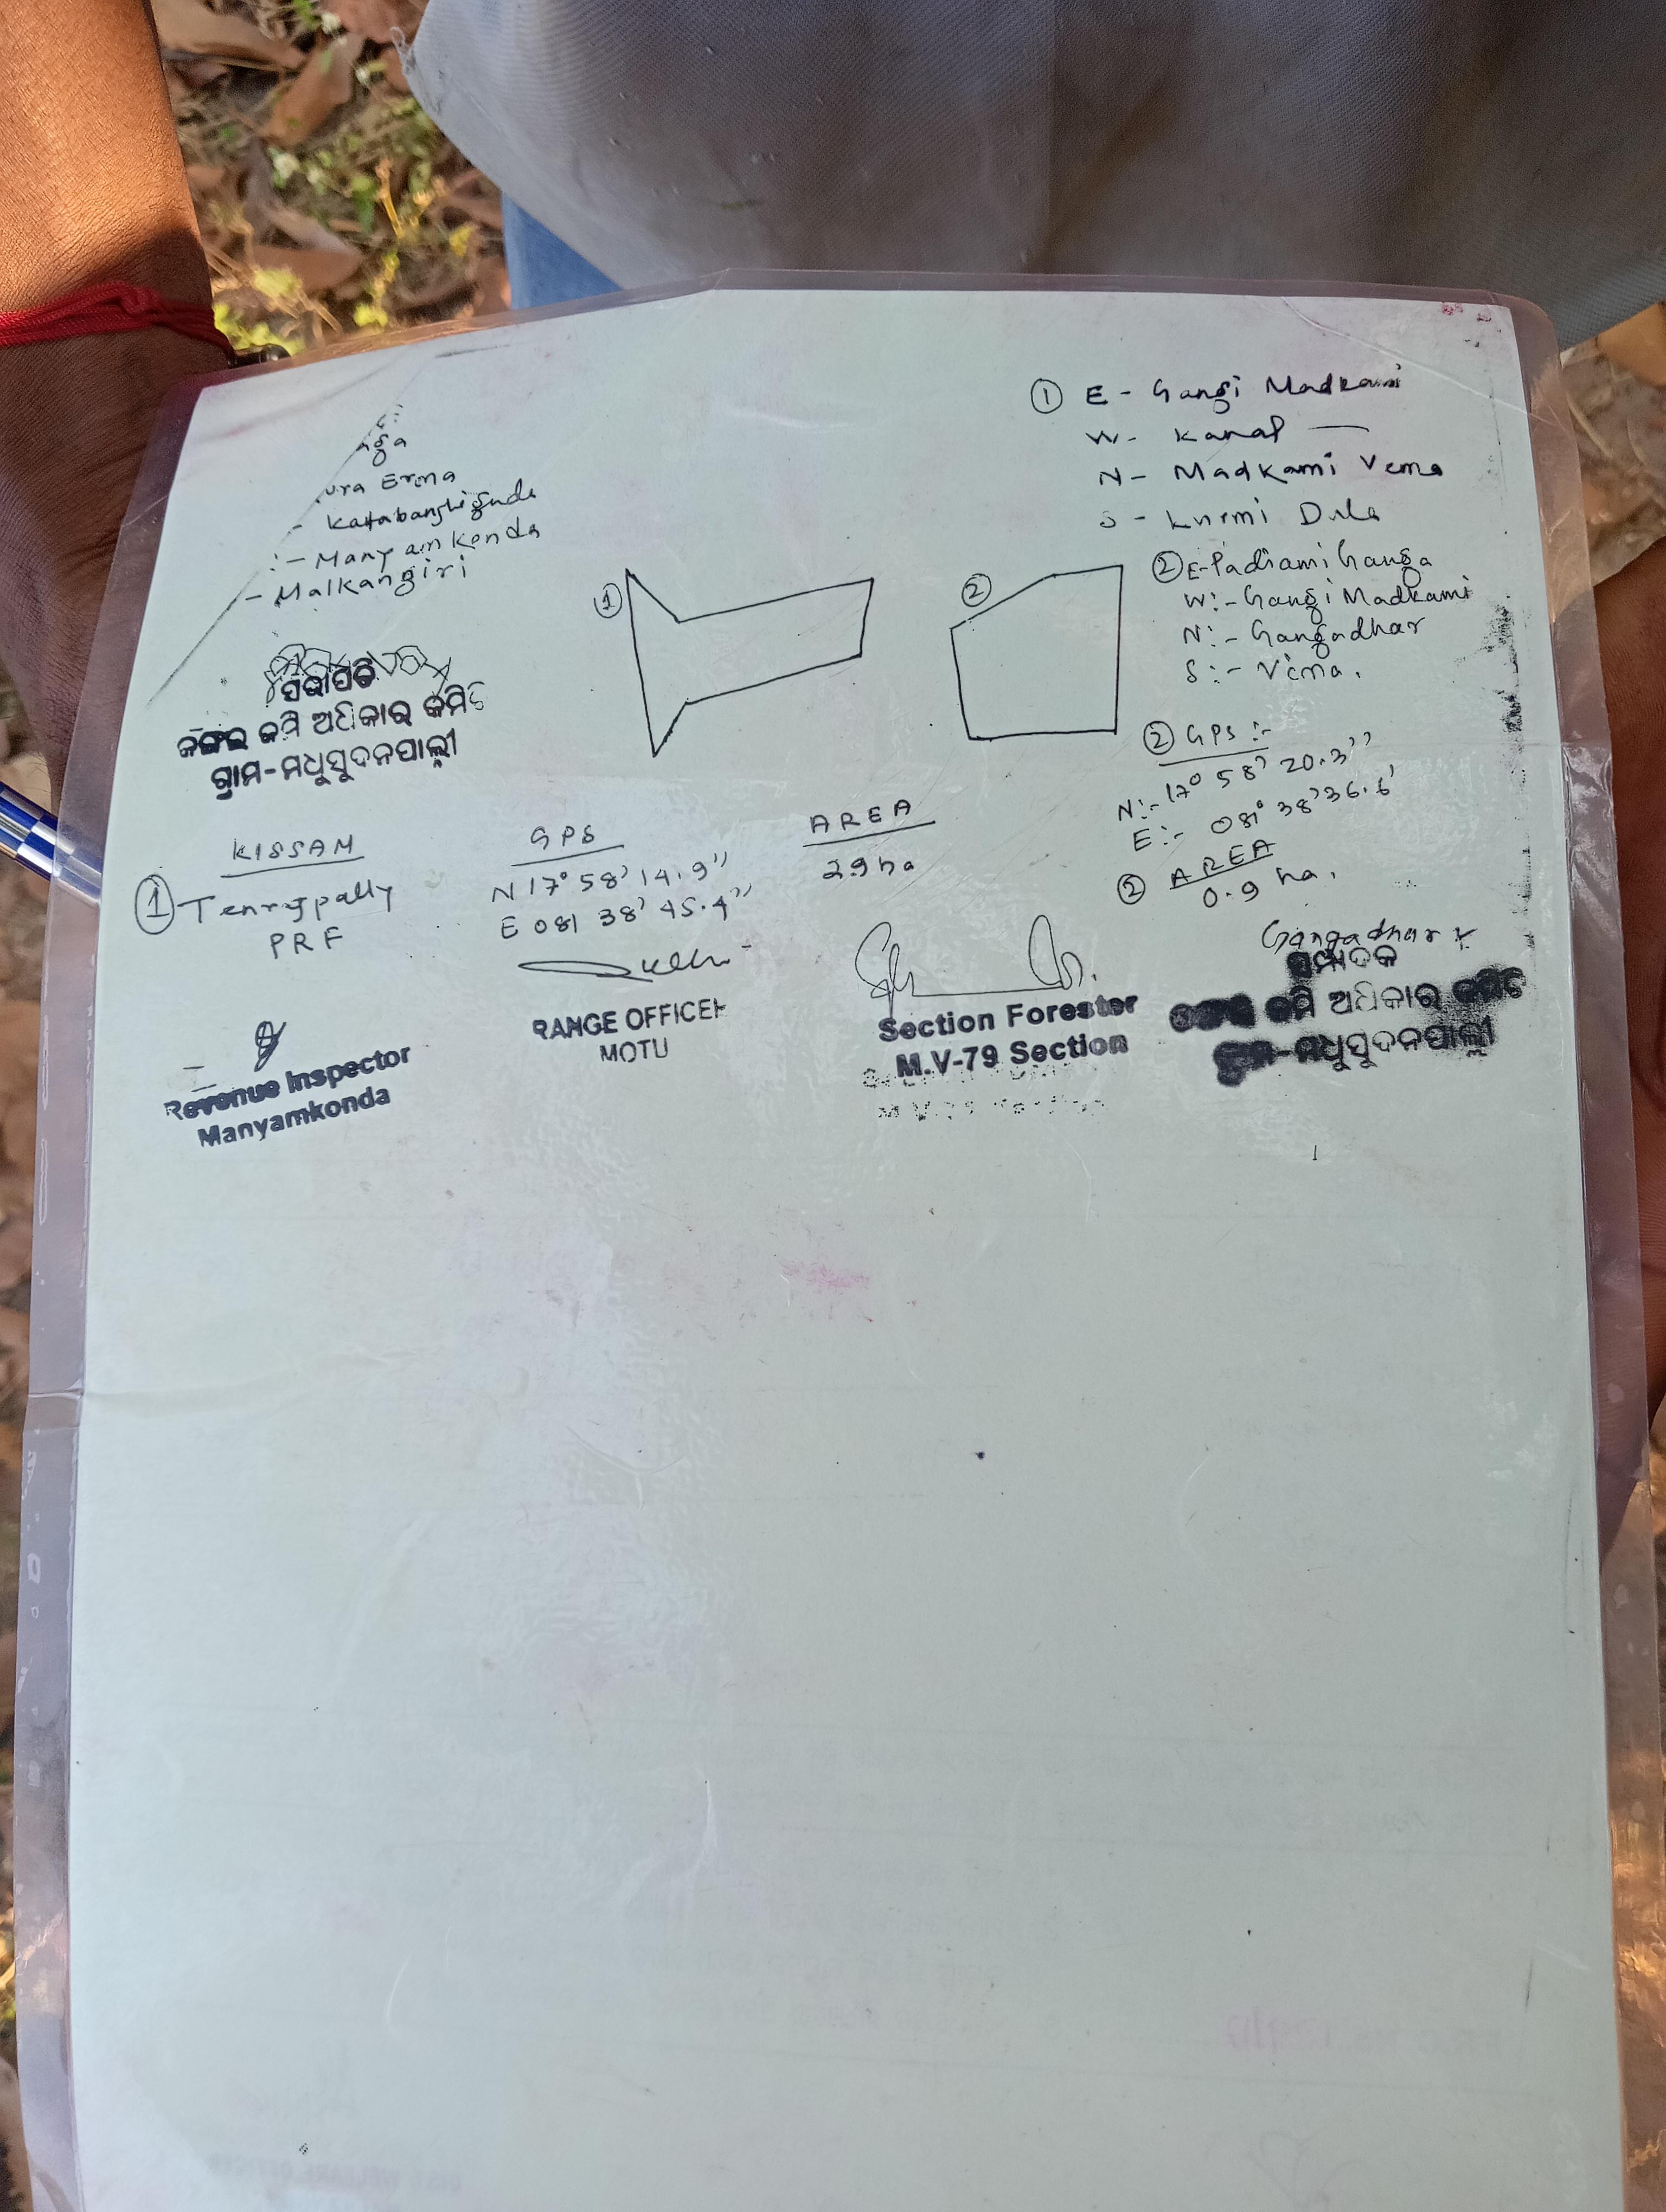 ura Erma
- Kattabanshiguda
:- Manyamkonda
- Malkangiri
ସଭାପତି
ଜଙ୍ଗଲ ଜମି ଅଧିକାର କମିଟି
ଗ୍ରାମ-ମଧୁସୁଦନପାଲ୍ଲୀ
① E - Gangi Madkami
W - Kanal —
N - Madkami Vema
S - Kurmi Dula
② E - Padiami Ganga
W :- Gangi Madkami
N :- Gangadhar
S :- Vema.
①
②
② GPS :-
N :- 17° 58' 20.3''
E :- 081° 38' 36.6'
② AREA
0.9 ha.
KISSAM
① Tenrypally
PRF
GPS
N 17° 58' 14.9''
E 081 38' 45.4''
AREA
2.9 ha
Revenue Inspector
Manyamkonda
RANGE OFFICER
MOTU
Section Forester
M.V-79 Section
Gangadhar
ସମ୍ପାଦକ
ଜମି ଅଧିକାର କମିଟି
ଗ୍ରାମ-ମଧୁସୁଦନପାଲ୍ଲୀ